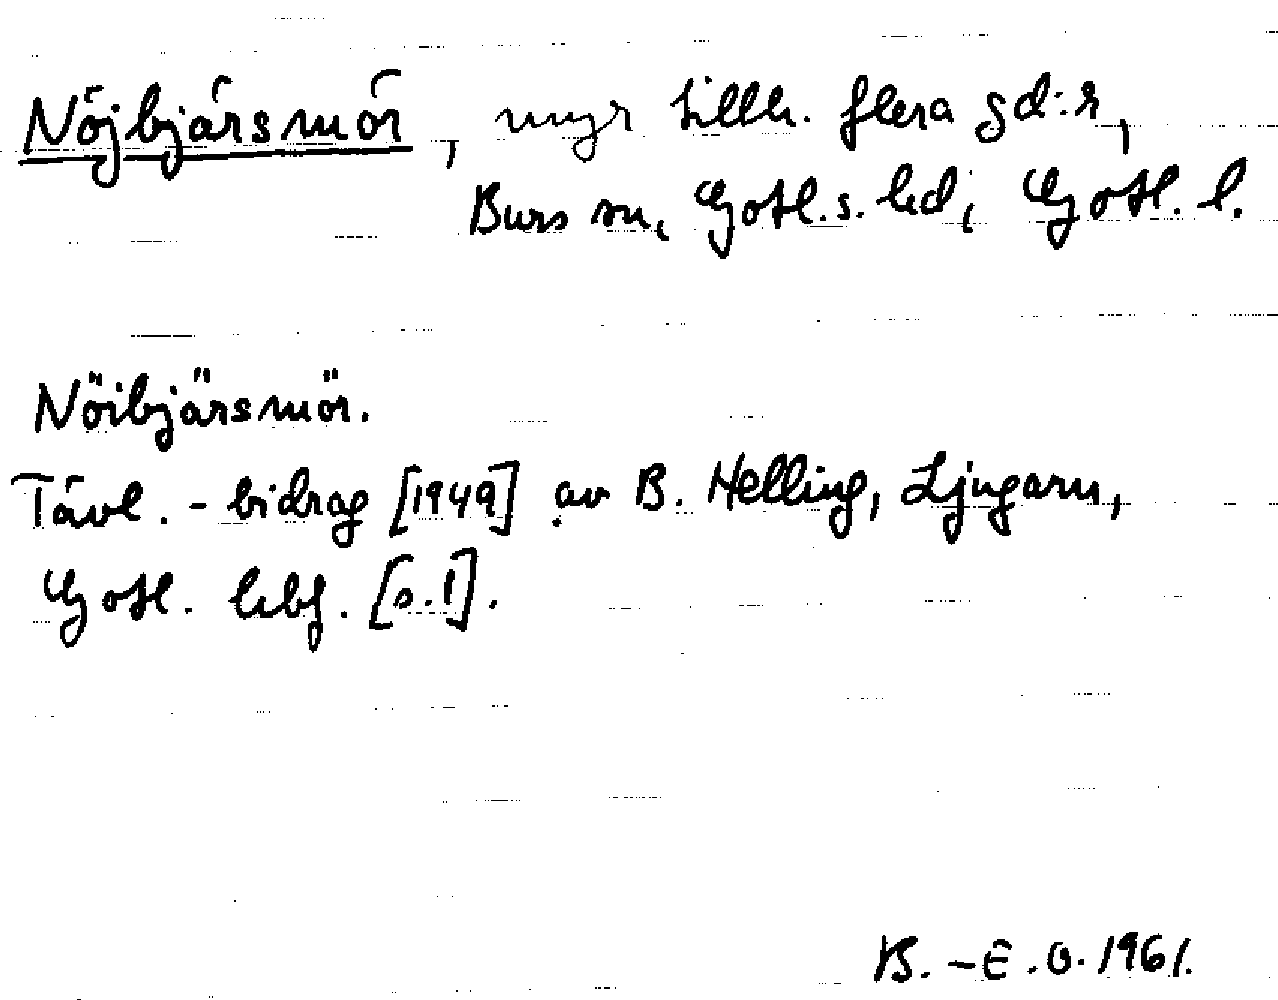 Nöjbjärsmör, myr tillh. flera gd:r,
Burs sn, Gotl.s. hd, Gotl. l.
Nöibjärsmör.
Tävl.-bidrag [1949] av B. Helling, Ljugarn,
Gotl. hbf. [s.1].
B.-E.O. 1961.